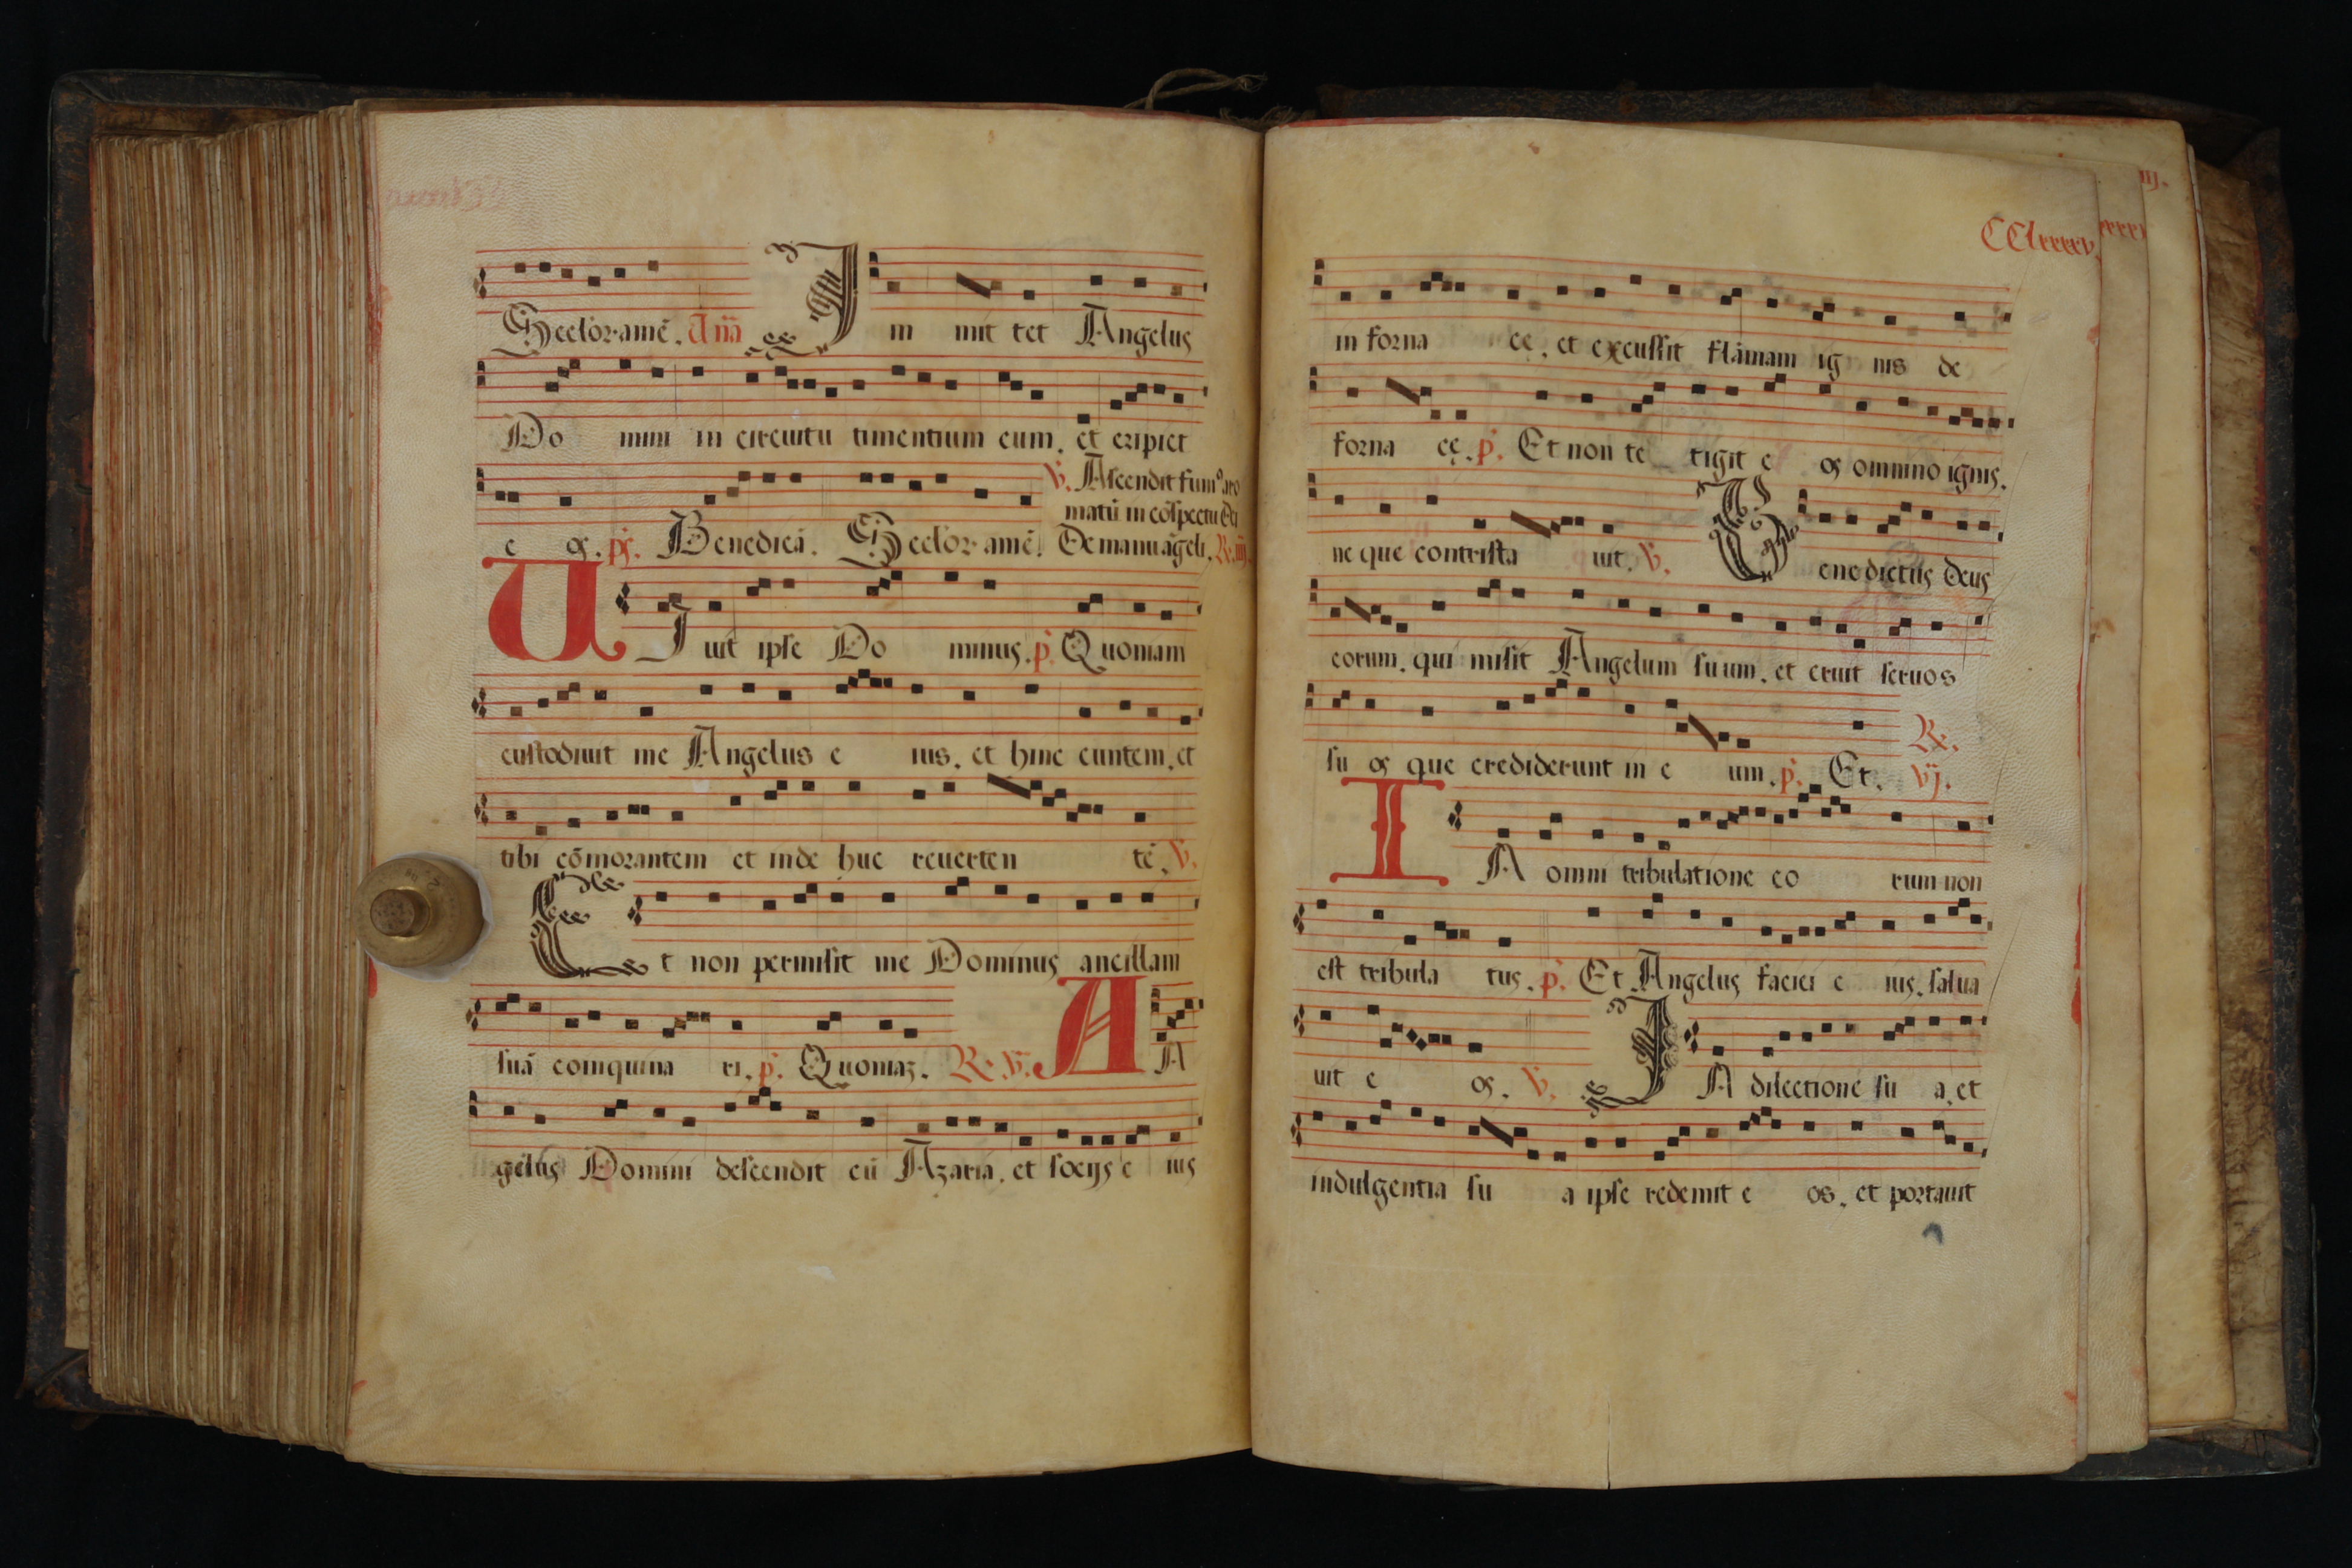 Seclor. amē. Aña Immittet Angelus
Domini in circuitu timentium eum. et eripiet
℣. Ascendit fumꝰ aro
matū in cōspectu Dñi
eos. ps. Benedicā. Seclor. amē. De manu āgeli. ℟. iiij.
UJuit ipse Dominus. p. Quoniam
custodiuit me Angelus eius. et hinc euntem. et
tibi cōmorantem et inde huc reuertentē. ℣.
Et non permisit me Dominus ancillam
suā coinquinari. p. Quoniaz. ℟. ℣. AA
gelus Domini descendit cū Azaria. et socijs eius
CClxxxxv.
in fornace. et excussit flāmam ignis de
fornacę. p. Et non tetigit eos omnino ignis.
neque contristauit. ℣. Benedictus Deus
eorum. qui misit Angelum suum. et eruit seruos
suos que crediderunt in eum. p. Et. ℟. vj.
IA omni tribulatione eorum non
est tribulatus. p. Et Angelus faciei eius. salua
uit eos. ℣. IA dilectione sua. et
indulgentia sua ipse redemit eos. et portauit